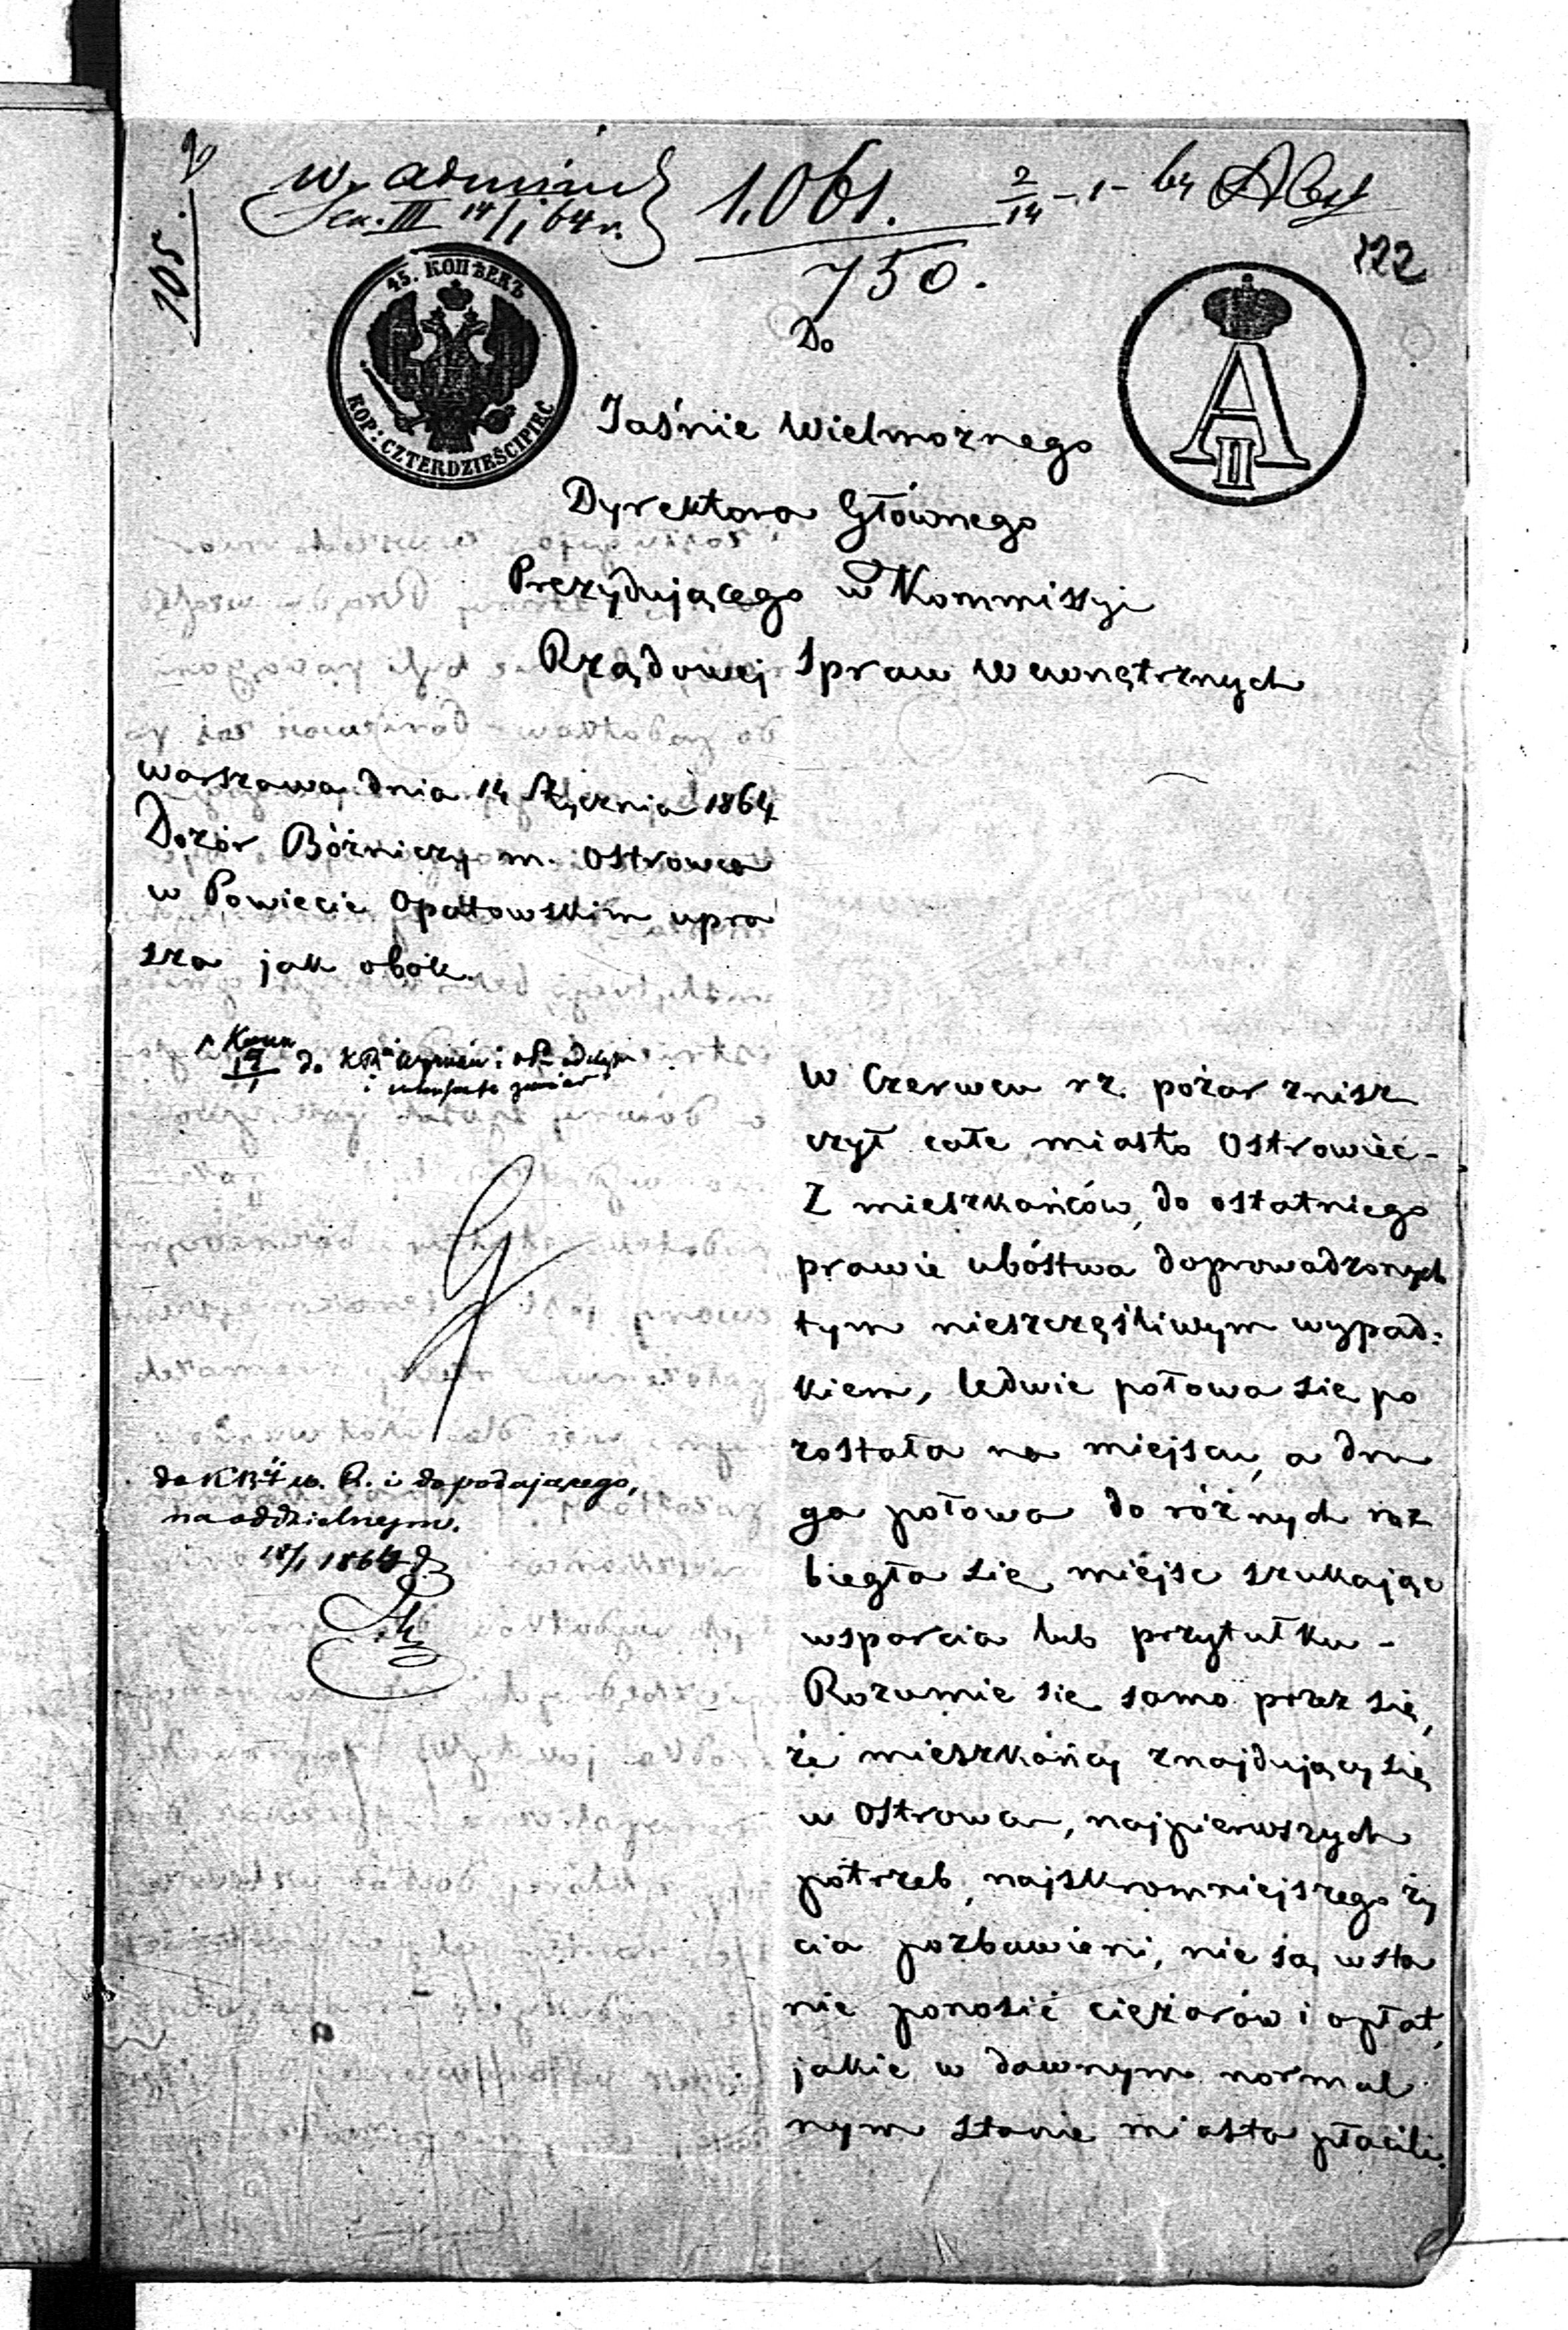 105.
W. admin.
Sek. III 14/1 64 r.
1.061.
750.
2/14 - 1 - 64
122
45. КОПѢЕКЪ
KOP: CZTERDZIEŚCIPIĘĆ
A II
Do
Jaśnie Wielmożnego
Dyrektora Głównego
Prezydującego w Kommissyi
Rządowej Spraw Wewnętrznych
Warszawa, dnia 14 Stycznia 1864
Dozór Bóżniczy m. Ostrowca
w Powiecie Opatowskim upra
sza jak obok.
do KR
do KRz w. R. i do podającego,
na oddzielnym.
18/1 1864
W Czerwcu rz. pożar znisz
czył całe miasto Ostrowiec -
Z mieszkańców, do ostatniego
prawie ubóstwa doprowadzonych
tym nieszczęśliwym wypad:
kiem, ledwie połowa się po
została na miejscu, a dru
ga połowa do różnych roz
biegła się miejsc szukając
wsparcia lub przytułku -
Rozumie się samo przez się,
że mieszkańcy znajdujący się
w Ostrowcu, najpierwszych
potrzeb, najskromniejszego ży
cia pozbawieni, nie są w sta
nie ponosić ciężarów i opłat,
jakie w dawnym normal
nym stanie miasta płacili.